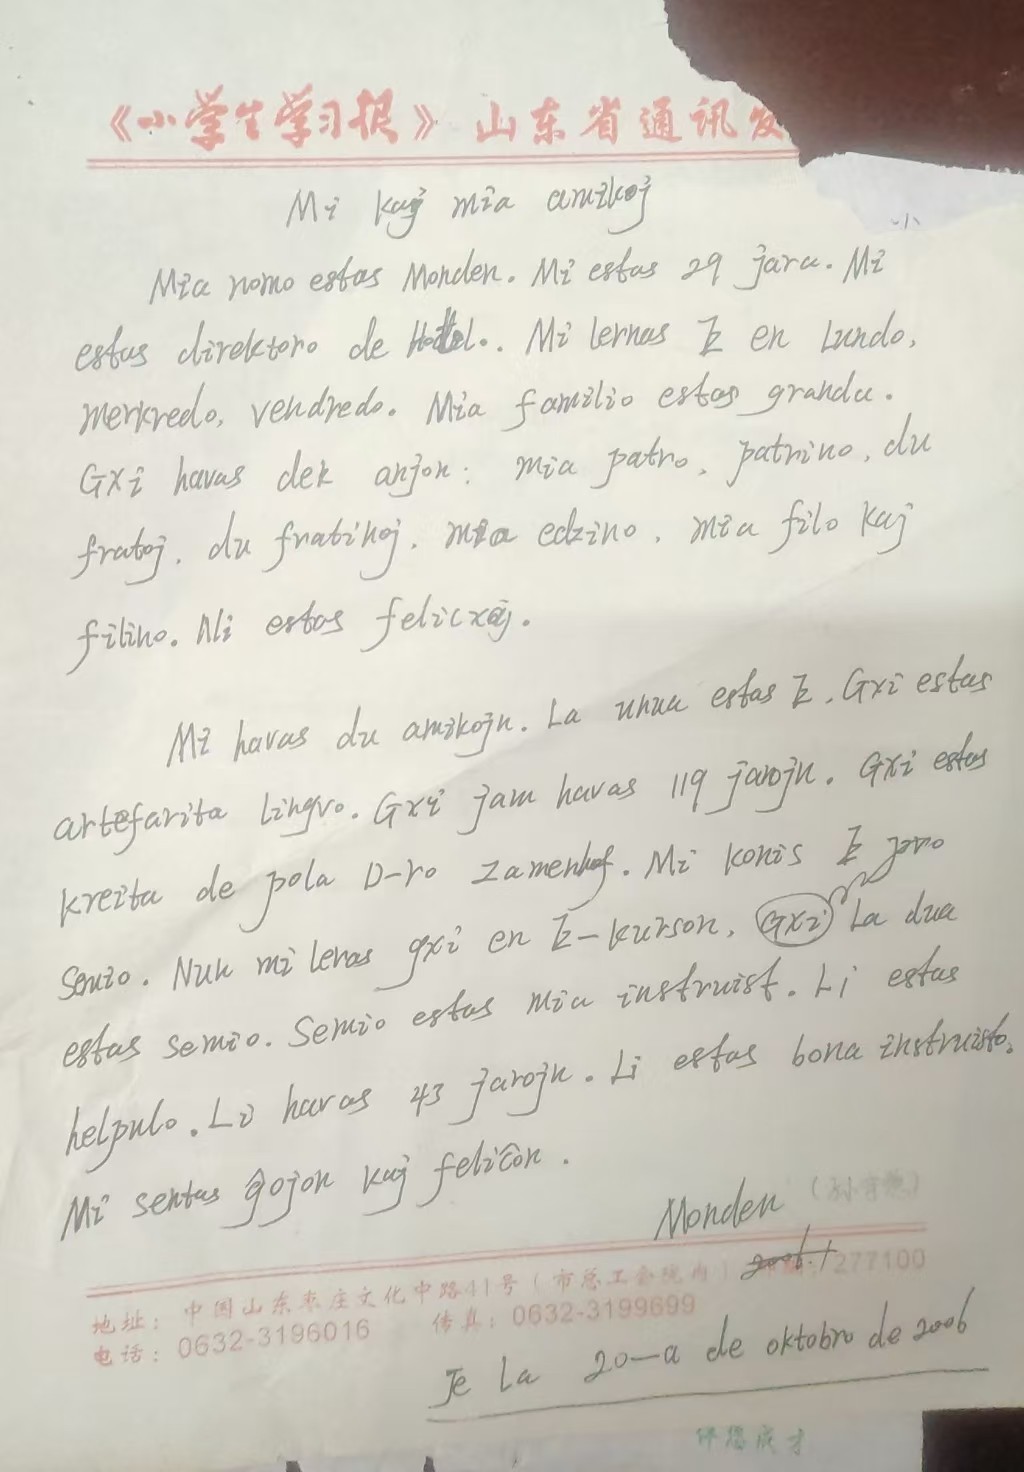 《小学生学习报》山东省通讯发
Mi kaj mia amikoj
小
Mia nomo estas Monden. Mi estas 29 jara. Mi
estas direktoro de Hotelo. Mi lernas E en Lundo,
merkredo, vendredo. Mia familio estas granda.
Gxi havas dek anjon: mia patro, patrino, du
fratoj, du fratinoj, mia edzino, mia filo kaj
filino. Ni estas felicxaj.
Mi havas du amikojn. La unua estas E. Gxi estas
artefarita lingvo. Gxi jam havas 119 jarojn. Gxi estas
kreita de pola D-ro Zamenhof. Mi konis E pro
Semio. Nun mi leras gxi en E-kurson, Gxi La dua
estas semio. Semio estas mia instruist. Li estas
helpulo. Li havas 43 jarojn. Li estas bona instruisto.
Mi sentas ĝojon kaj feliĉon.
Monden
2006.1
277100
地址：中国山东枣庄文化中路41号（市总工会院内）
电话：0632-3196016 传真：0632-3199699
Je la 20-a de oktobro de 2006
伴您成才